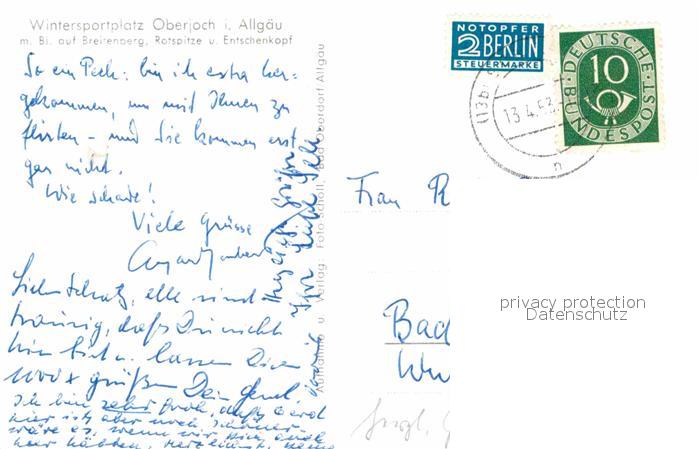 Wintersportplatz Oberjoch i. Allgäu
m. Bl. auf Breitenberg, Rotspitze u. Entschenkopf
So ein Pech: bin ich extra her=
gekommen, um mit Ihnen zu
flirten - und Sie kommen erst
gar nicht.
Wie schade!
Viele Grüsse
Lieber Schatz, alle sind
traurig, daß Du nicht
hier bist u. lassen Dich
1000 x grüßen Dein
Ich bin sehr froh, daß
hier ist, aber noch schöner
wäre es, wenn wir Dich auch
hier hätten. Herzlichst,
Verlag Foto Scholl, Bad Oberdorf/Allgäu
NOTOPFER
2 BERLIN
STEUERMARKE
DEUTSCHE
10
BUNDESPOST
13.4.53
Frau R
Bad
privacy protection
Datenschutz